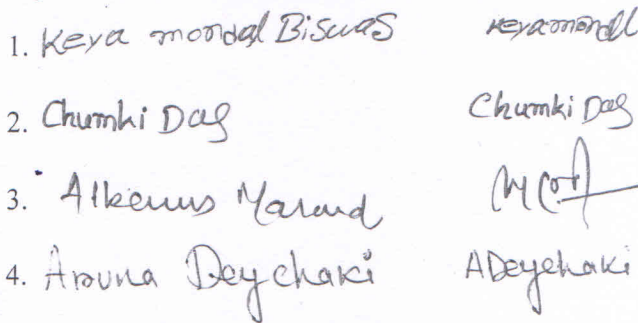 1. Keya mondal Biswas keyamondl
2. Chumki Das Chumki Das
3. Alkenus
4. Aruna Deychaki ADeychaki